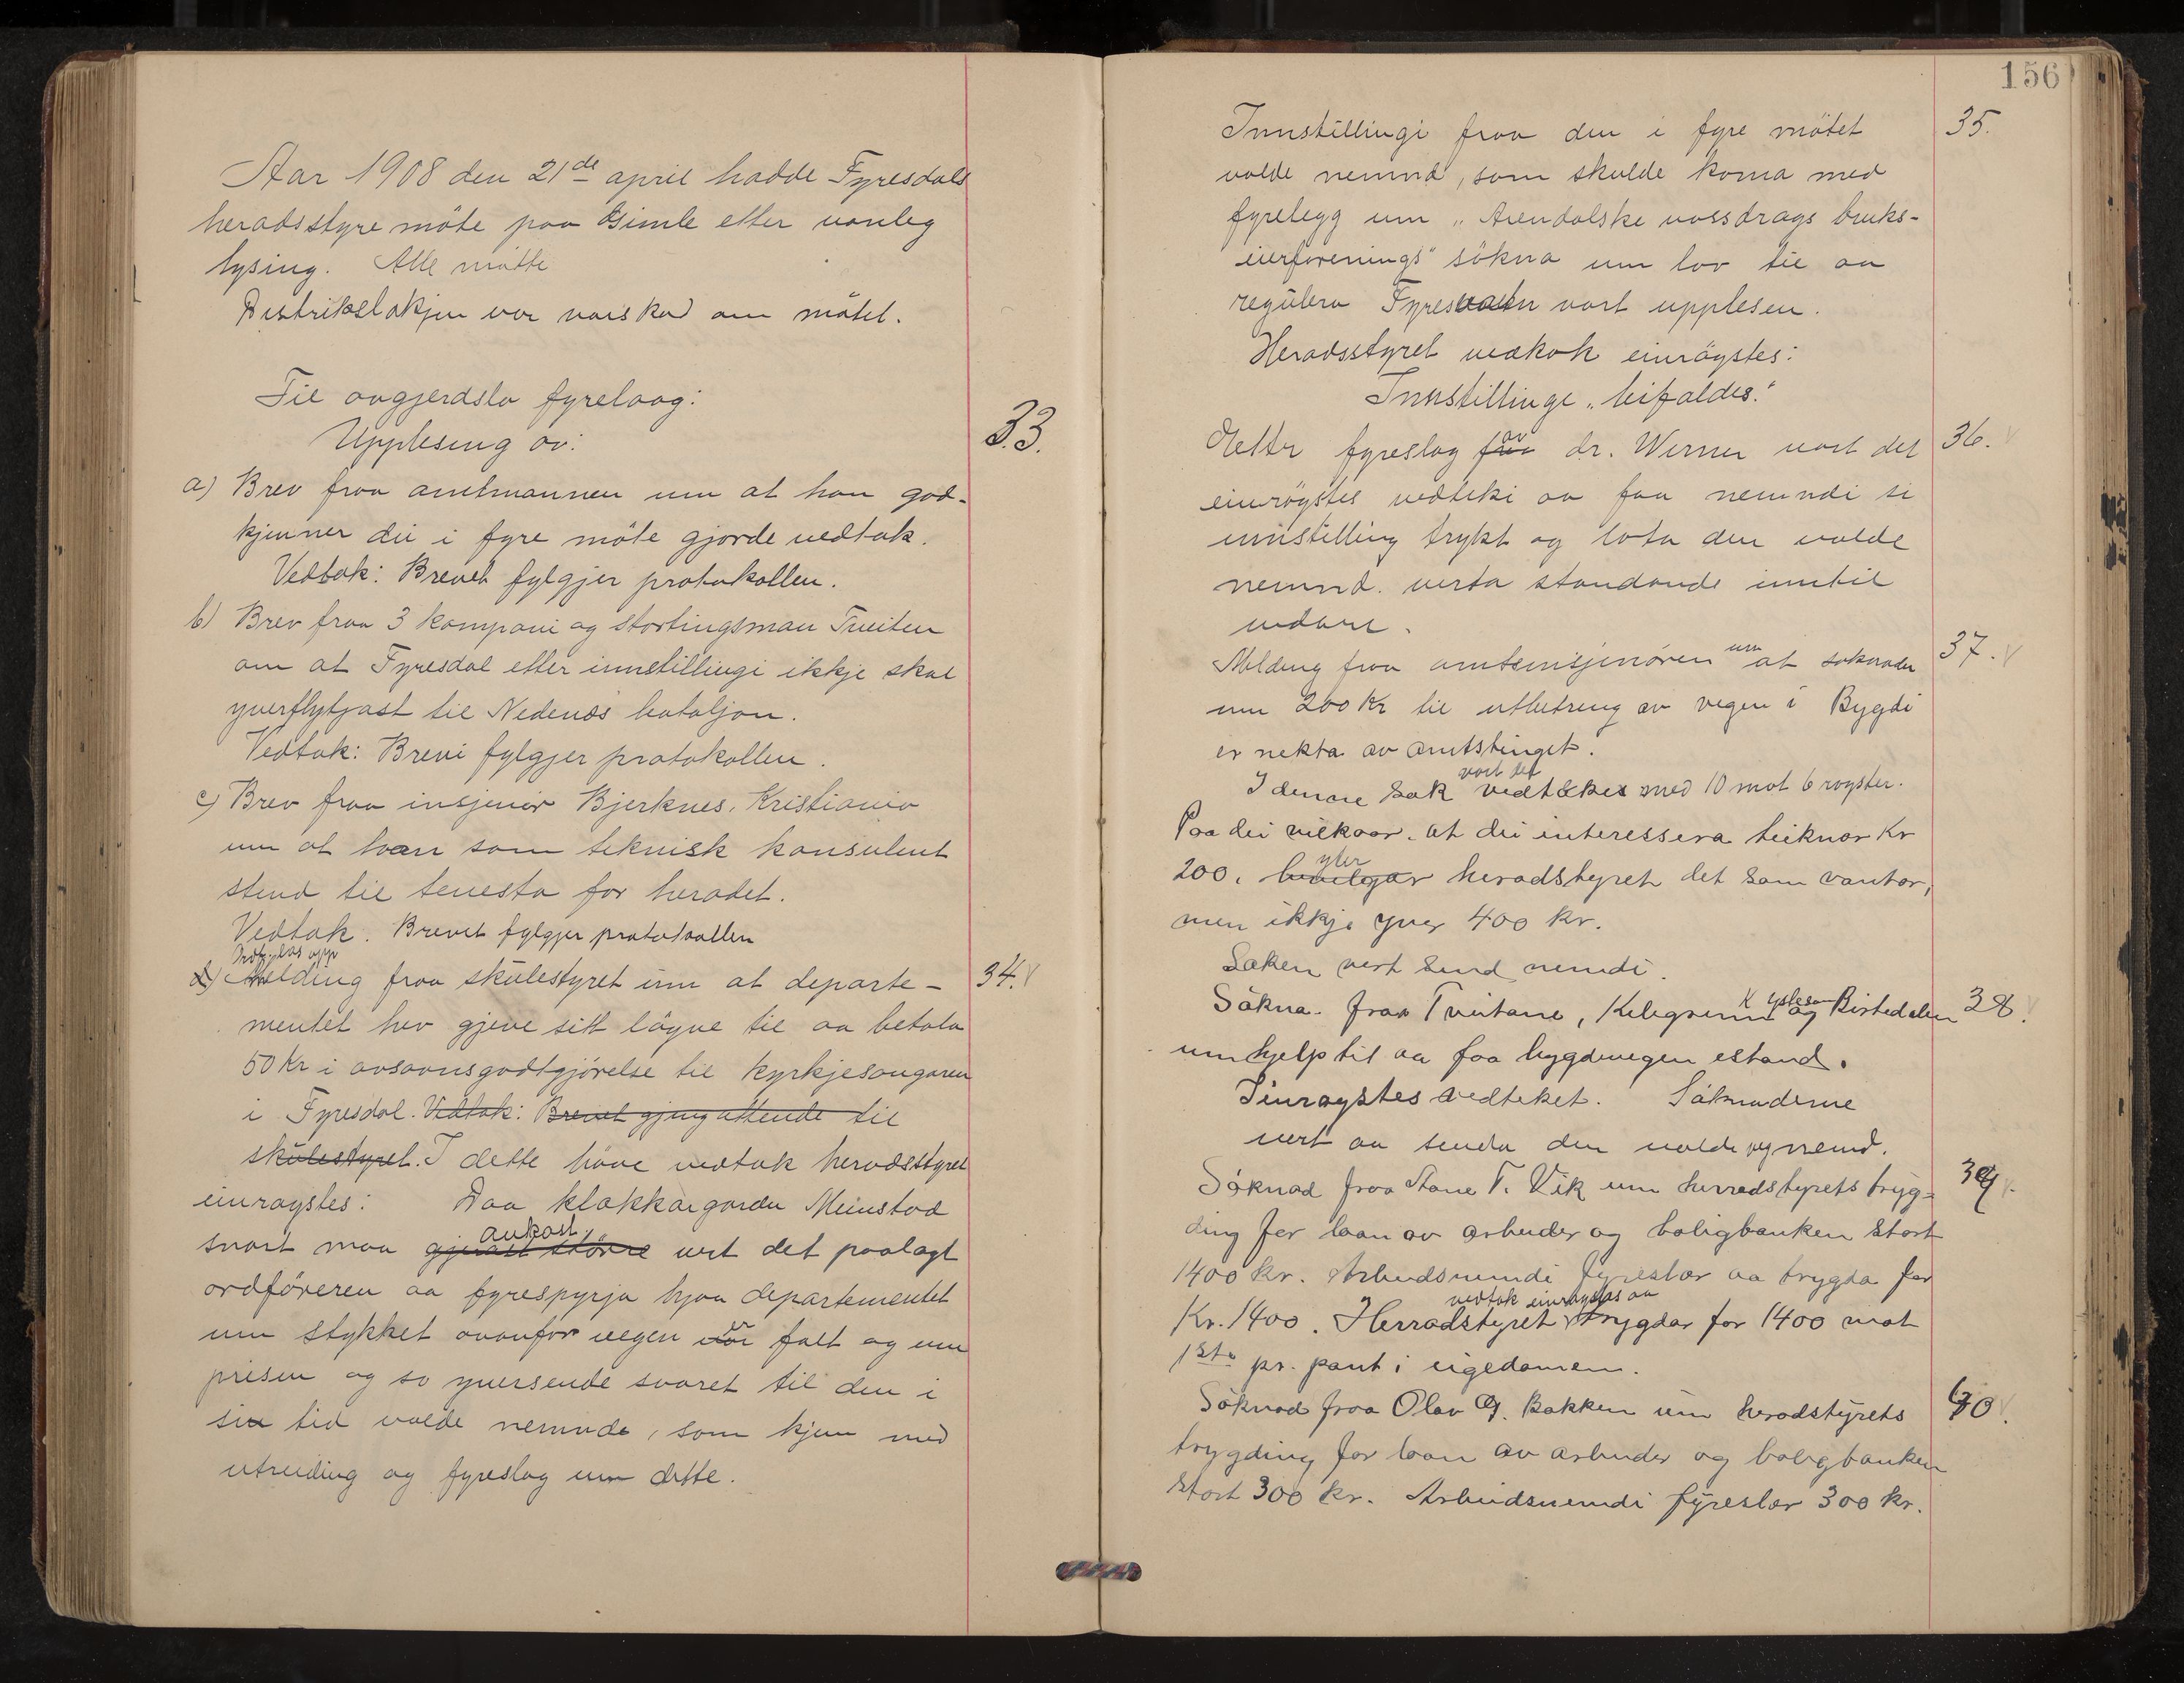 Aar 1908 den 21de april hadde Fyresdals
heradsstyre möte paa Gimle etter vanleg
lysing. Alle mötte
Distriktslækjen var varskad om mötet.
Til avgjerdsla fyrelaag:
Upplesing av:
33.
a) Brev fraa amtmannen um at han god-
kjenner dei i fyre möte gjorde vedtak.
Vedtak: Brevet fylgjer protokollen.
b) Brev fraa 3 kompani og stortingsman Tveiten
om at Fyresdal etter innstillingi ikkje skal
yverflytjast til Nedenæs bataljon.
Vedtak: Brevi fylgjer protokollen.
c) Brev fraa insjeniör Bjerknes, Kristiania
um at han som teknisk konsulent
stend til tenesta for heradet.
Vedtak. Brevet fylgjer protokollen
Ordf. las upp
d) Melding fraa skulestyret um at departe-
34.
mentet hev gjeve sitt löyve til aa betala
50 Kr i avsavnsgodtgjörelse til kyrkjesangaren
i Fyresdal. Vedtak: Brevet gjeng attende til
skulestyret. I dette höve vedtok heradsstyret
einrøystes: Daa klokkargarden Meinstad
ankast
snart maa större vert det paalagt
ordföreren aa fyrespyrja hjaa departementet
um stykket ovanfor vegen er falt og um
prisen og so yversende svaret til den i
sin tid valde nemnde, som kjem med
utreiding og fyreslag um dette.
156
Innstillingi fraa den i fyre mötet
35.
valde nemnd, som skulde koma med
fyrelegg um "Arendalske vassdrags bruks-
eierforenings" sökna um lov til aa
regulera Fyresvatn vart upplesen.
Heradsstyret vedtok einröystes:
Innstillinge "bifaldes."
Etter fyreslag fraa av dr. Werner vart det
36.
einröystes vedteki aa faa nemndi si
innstilling trykt og lata den valde
nemnd. verta standande inntil
vidare.
Melding fraa amtsinsjenören um at söknader
37.
um 200 Kr til utbetring av vegen i Bygdi
er nekta av amtstinget.
vart det
I denne Sak vedtekes med 10 mot 6 røyster.
Paa dei vilkaar. at dei interessera teiknar Kr
yter
200. heradstyret det som vantar,
men ikkje yver 400 kr.
Saken vert Send nemdi.
Sökna. fraa Tveitane, og Birtedalen
38.
um hjelp til aa faa bygdevegen istand.
Einrøystes vedteket. Söknaderne
vert aa senda den valde vegnemd.
Söknad fraa Tone T. Vik um herradstyrets tryg-
39.
ding for laan av arbeider og boligbanken stort
1400 kr. Arbeidsnemdi fyreslær aa trygda for
vedtok einrøystes aa
Kr. 1400. Herradstyret trygdar for 1400 mot
1ste pr. pant i eigedomen.
Söknad fraa Olav G. Bakken um heradstyrets
40.
trygding for laan av arbeider og boligbanken
Stort 300 kr. Arbeidsnemdi fyreslær 300 kr.